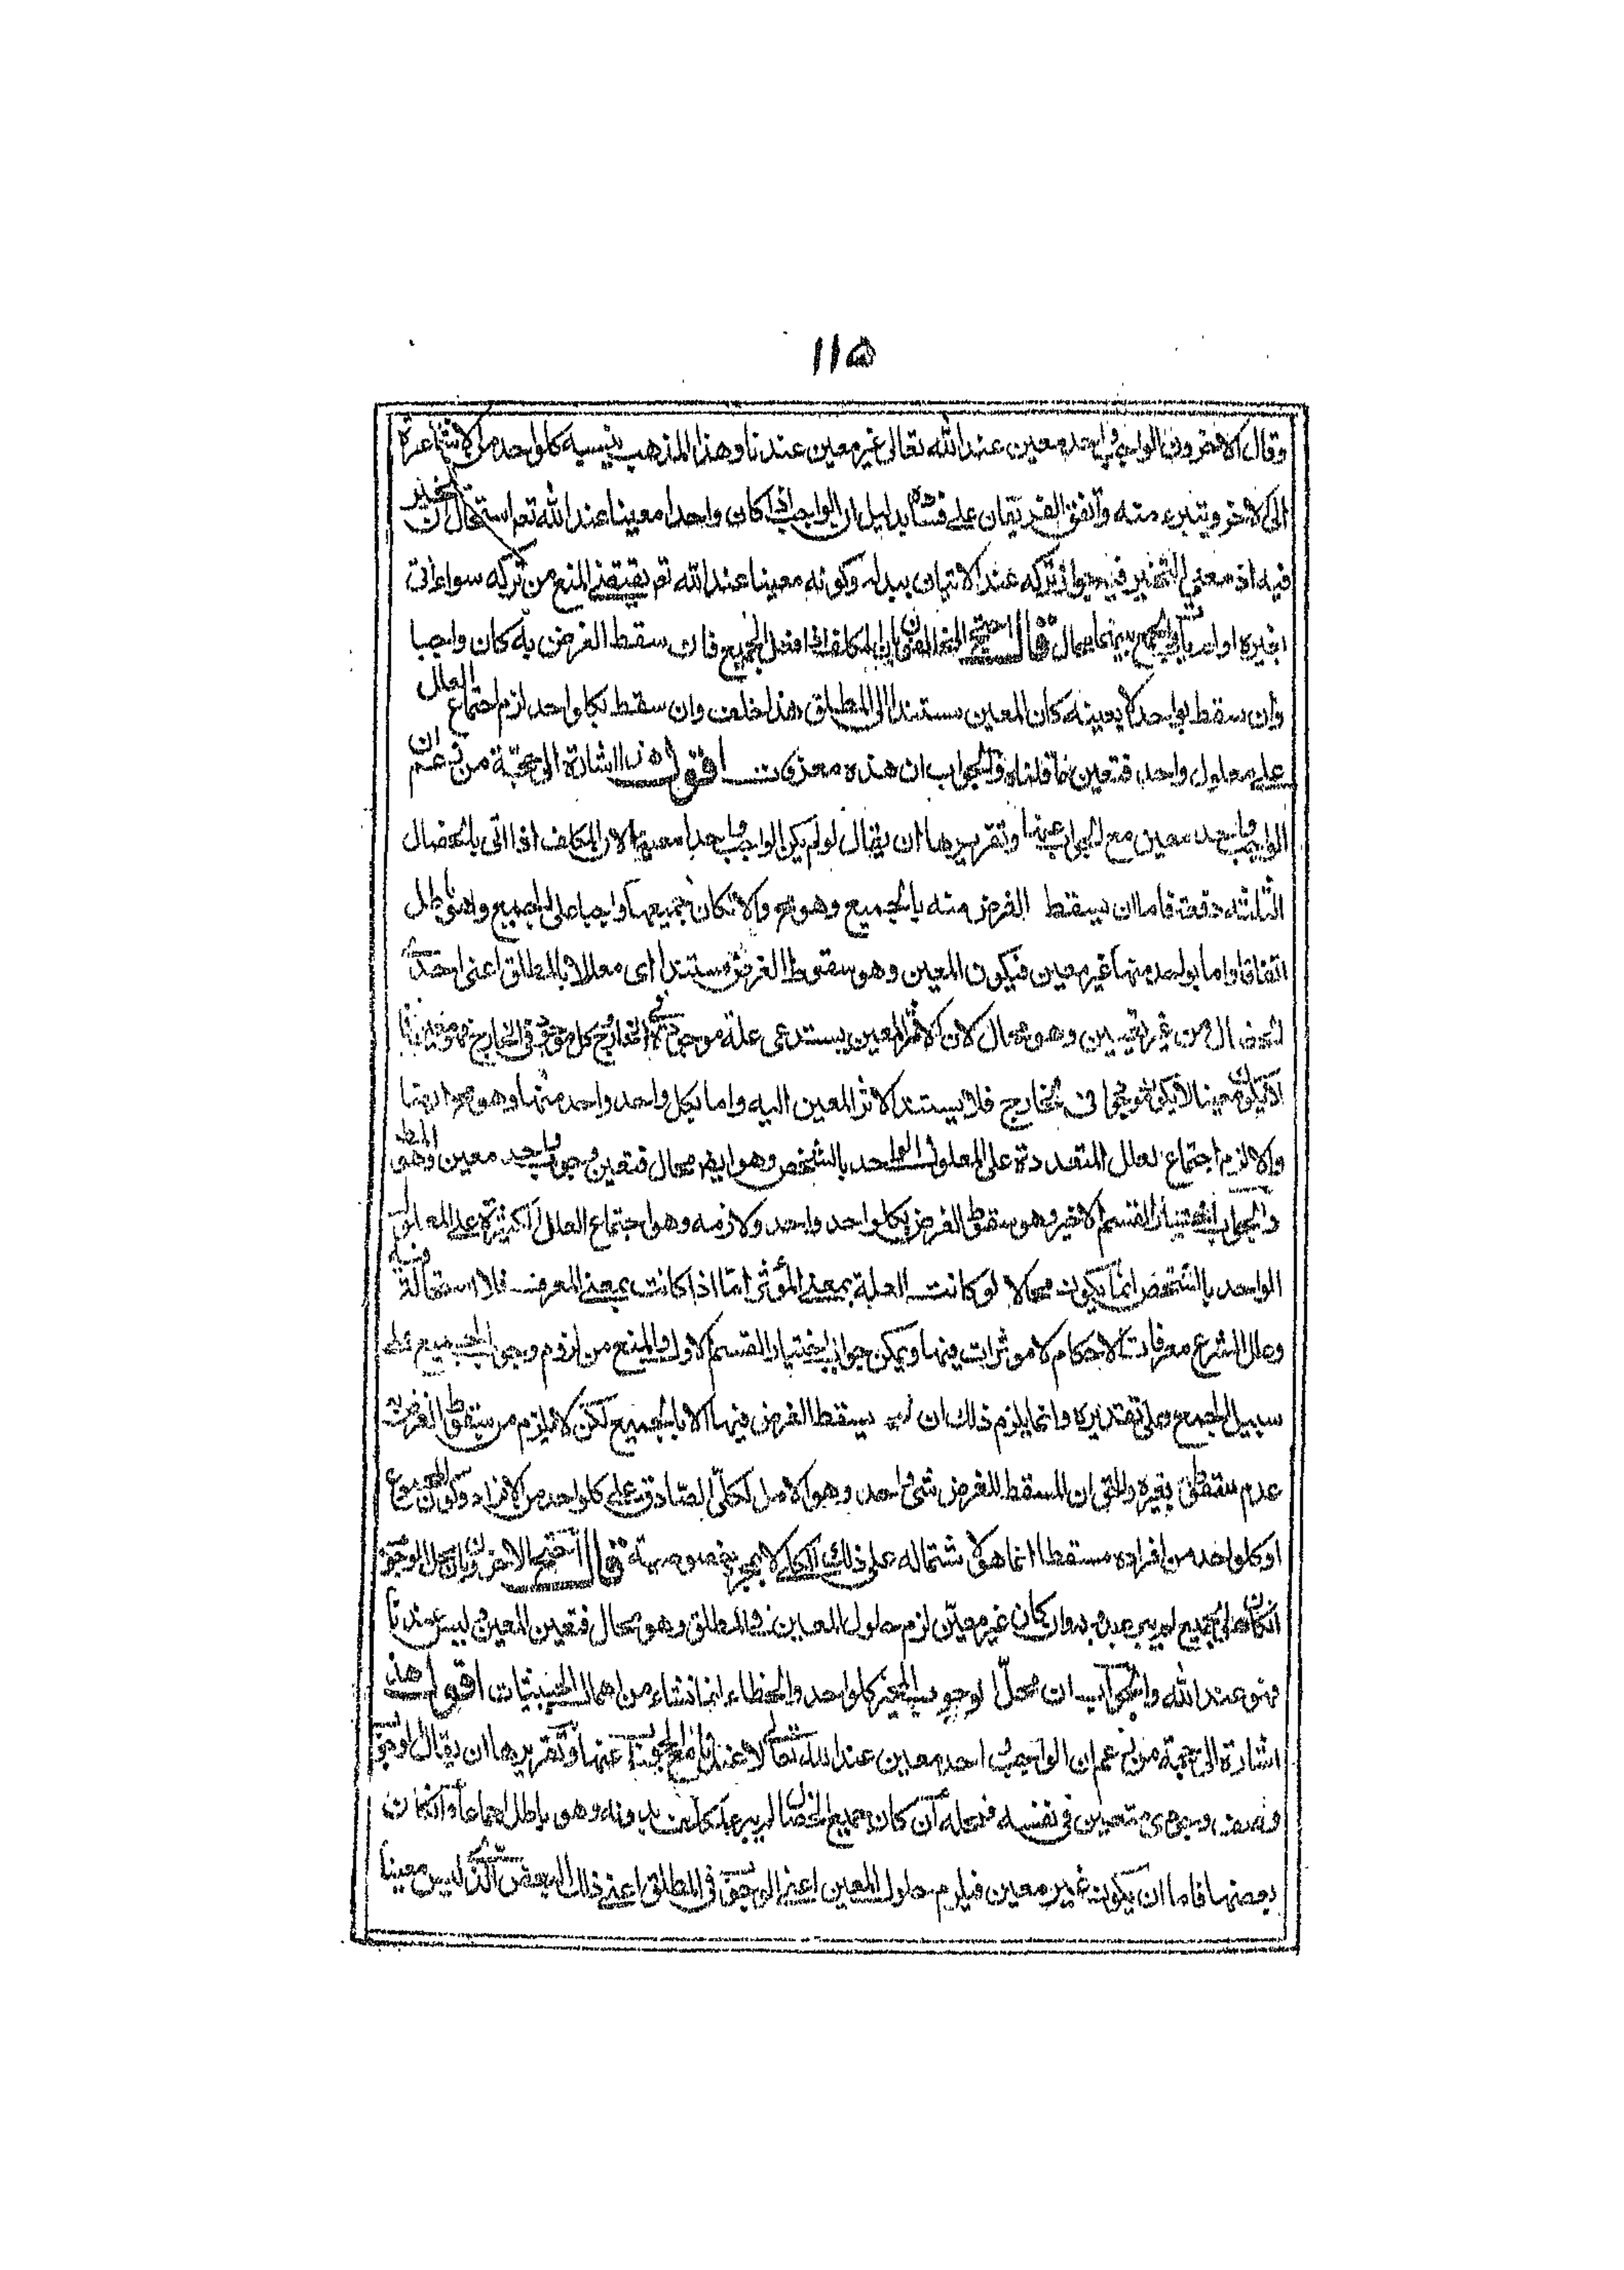 ١١٥
وقال الاخرون الواجب واحد معين عند الله تعالى غير معين عندنا وهذا المذهب ينسبه كل واحد من الاشاعرة
الى الاخر ويتبرء منه واتفق الفريقان على فساده بدليل ان الواجب اذا كان واحدا معينا عند الله تعم استحال التخيير
فيه اذ معنى التخيير فيه جواز تركه عند الاتيان ببدله وكونه معينا عند الله تعم يقتضى المنع من تركه سواء اتى
بغيره اولم يأت والجمع بينهما محال قال احتج المخالفون بان المكلف اذا فعل الجميع فان سقط الفرض به كان واجبا
وان سقط بواحد لا بعينه كان المعين مستندا الى المطلق هذا خلف وان سقط بكل واحد لزم اجتماع العلل
على معلول واحد فتعين ما قلناه والجواب ان هذه معرفات اقول هذا اشارة الى حجة من زعم ان
الواجب واحد معين مع الجواب عنها وتقريرها ان يقال لو لم يكن الواجب واحدا معينا لكان المكلف اذا اتى بالخصال
الثلثة دفعة فاما ان يسقط الفرض منه بالجميع وهو مح والا لكان جميعها واجبا على الجميع وهو باطل
اتفاقا واما بواحد منها غير معين فيكون المعين وهو سقوط الفرض مستندا اى معللا بالمطلق اعنى احد
الخصال من غير تعيين وهو محال لان الاثر المعين يستدعى علة موجودة فى الخارج وكل موجود فى الخارج فهو معين فما
لا يكون معينا لا يكون موجودا فى الخارج فلا يستند الاثر المعين اليه واما بكل واحد واحد منها وهو مح ايضا
والا لزم اجتماع العلل المتعددة على المعلول الواحد بالشخص وهو ايضا محال فتعين وجوب واحد معين وهو المط
والجواب انه نختار القسم الاخير وهو سقوط الفرض بكل واحد واحد ولازمه وهو اجتماع العلل الكثيرة على المعلول
الواحد بالشخص انما يكون محالا لو كانت العلة بمعنى المؤثر اما اذا كانت بمعنى المعرف فلا استحالة فيه
وعلل الشرع معرفات للاحكام لا مؤثرات فيها ويمكن جوابه باختيار القسم الاول والمنع من لزوم وجوب الجميع على
سبيل الجمع على تقديره وانما يلزم ذلك ان لو سقط الفرض فيها الا بالجميع لكن لا يلزم من سقوط الفرض به
عدم سقوطه بغيره والحق ان المسقط للفرض شئ واحد وهو الامر الكلى الصادق على كل واحد من الافراد وكون المجموع
او كل واحد من افراده مسقطا انما هو لاشتماله على ذلك الكلى لا بخصوصيته قال احتج الاخرون بان محل الوجوب
ان كان الجميع لم يبرء بدونه وان كان غير معين لزم حلول المعين فى المطلق وهو محال فتعين المعين وليس عندنا
فهو عند الله والجواب ان محل الوجوب المخير كل واحد والخطاء انما نشاء من اهمال الحيثيات اقول هذه
اشارة الى حجة من زعم ان الواجب واحد معين عند الله تعالى لا عندنا مع الجواب عنها وتقريرها ان يقال الوجوب
وصف وجودى متعين فى نفسه فمحله ان كان جميع الخصال لم يبرء المكلف بدونه وهو باطل اجماعا وان كان
بعضها فاما ان يكون غير معين فيلزم حلول المعين اعنى الوجوب فى المطلق اعنى ذلك البعض الذى ليس معينا